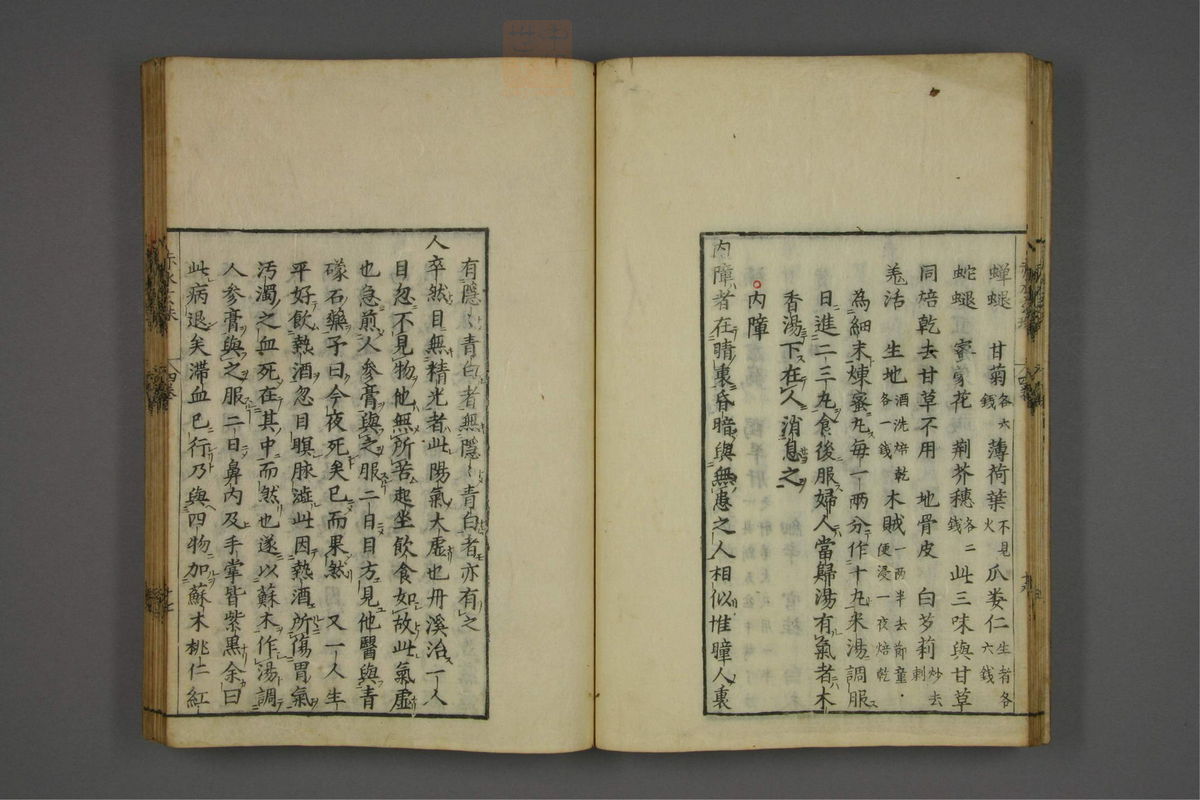 蟬蛻 甘菊各六錢 薄荷葉不見火 瓜蔞仁生者各六錢
蛇蛻 蜜蒙花 荆芥穗各二錢 此三味與甘草
同焙乾去甘草不用 地骨皮 白蒺莉炒去刺
羗活 生地酒洗焙乾各一錢 木賊一兩半去節童便浸一夜焙乾
為細末煉蜜丸每一兩分作十九米湯調服
日進二三丸食後服婦人當歸湯有氣者木
香湯下在人消息之
内障
内障者在睛裏昏暗與無患之人相似惟瞳人裏
有隱〻青白者無隱〻青白者亦有之
人卒然目無精光者此陽氣大虛也丹溪治一人
目忽不見物他無所苦起坐飲食如故此氣虛
也急煎人参膏與之服二日目方見他醫與青
礞石藥予曰今夜死矣已而果然 又一人生
平好飲熱酒忽目暝脉澁此因熱酒所傷胃氣
汚濁之血死在其中而然也遂以蘇木作湯調
人参膏與之服二日鼻内及手掌皆紫黑余曰
此病退矣滯血已行乃與四物加蘇木桃仁紅